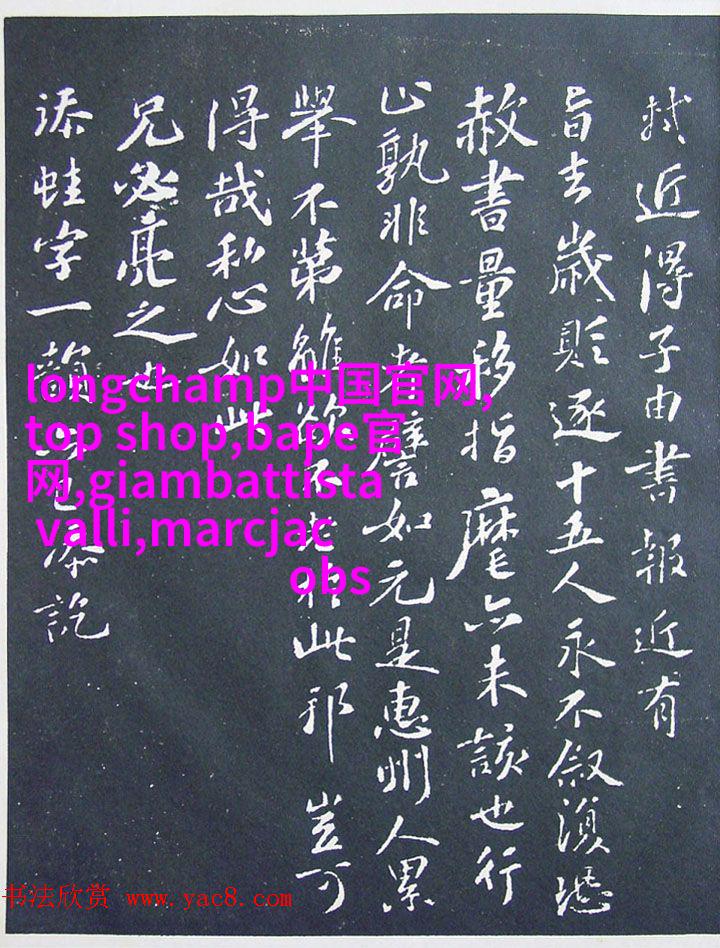 軾近得子由書報近有
旨去歲貶逐十五人永不叙湏恐
赦書量移指麾亦未該也行
止孰非命者譬如元是惠州人累
舉不第雖欲不老於此邪豈可
得哉私心如此
兄必亮之也
添蛙字一韻已添訖
longchamp中国官网,
top shop,bape官
网,giambattista
valli,marcjac
obs
书法欣赏 www.yac8.com